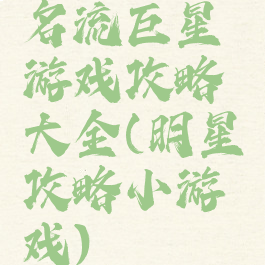 名流巨星
游戏攻略
大全(明星
攻略小游
戏)